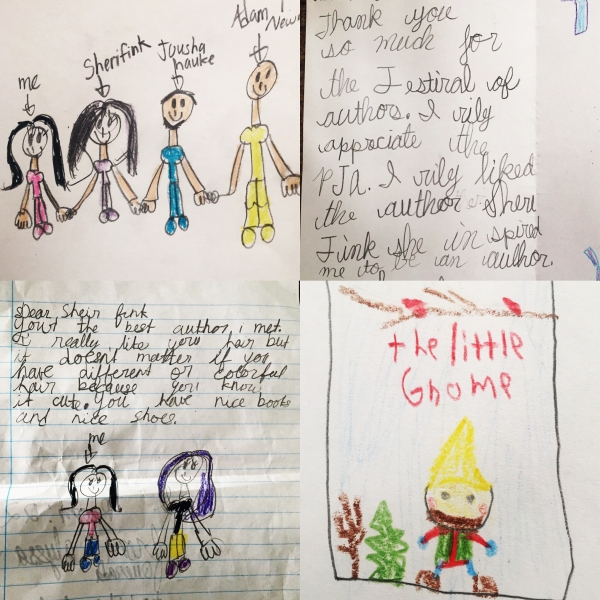 me
Sherifink
Juusha
hauke
Adam !
New
Thank you
so much for
the Festiral of
authors. I rily
approciate the
PJA. I rily liked
the author Sheri
Fink she in spired
me to be an author.
Dear Sheir fink
Your the best author i met.
I really like your hair but
it doesnt matter if you
have different or colorful
hair because you know
it cute. You have nice books
and nice shoes.
me
the little
Gnome